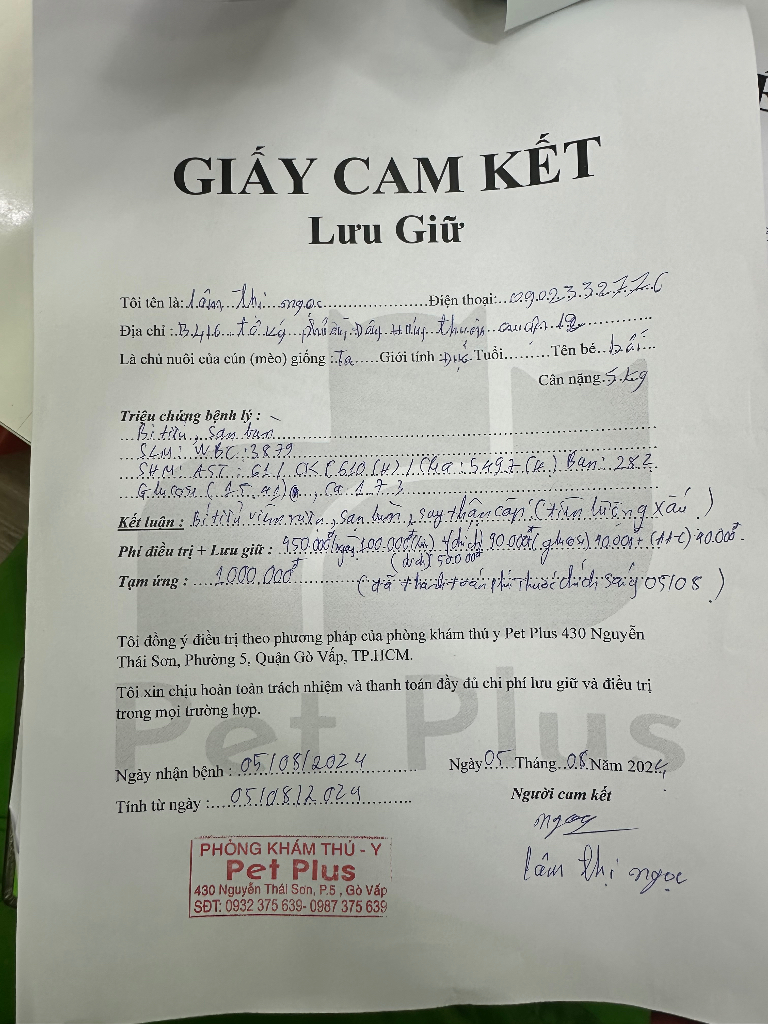 GIẤY CAM KẾT
Lưu Giữ
Tôi tên là: lâm thị ngọc Điện thoại: 0902332776
Địa chỉ: B416 tổ Đông Hưng thuận quận 12
Là chủ nuôi của cún (mèo) giống: Ta Giới tính: Đực Tuổi Tên bé
Cân nặng 5 kg
Triệu chứng bệnh lý :
Bí tiểu, sạn bùn
SLM: WBC: 38.79
SHM: AST: 61 / CK P 610 (H) / Bun: 282
Glucose
Kết luận : Bí tiểu viêm, sạn bùn, suy thận cấp (tiên lượng xấu)
Phí điều trị + Lưu giữ : 450.000đ/ngày 100.000đ + dịch 90.000đ (glucose)
(dịch) 50.000đ
Tạm ứng : 1000.000đ (đã thanh toán phí thuốc sáng 05/08)
Tôi đồng ý điều trị theo phương pháp của phòng khám thú y Pet Plus 430 Nguyễn
Thái Sơn, Phường 5, Quận Gò Vấp, TP.HCM.
Tôi xin chịu hoàn toàn trách nhiệm và thanh toán đầy đủ chi phí lưu giữ và điều trị
trong mọi trường hợp.
Pet Plus
Ngày nhận bệnh : 05/08/2024 Ngày 05 Tháng 08 Năm 2024
Tính từ ngày : 05/08/2024 Người cam kết
ngọc
lâm thị ngọc
PHÒNG KHÁM THÚ - Y
Pet Plus
430 Nguyễn Thái Sơn, P.5 , Gò Vấp
SĐT: 0932 375 639- 0987 375 639